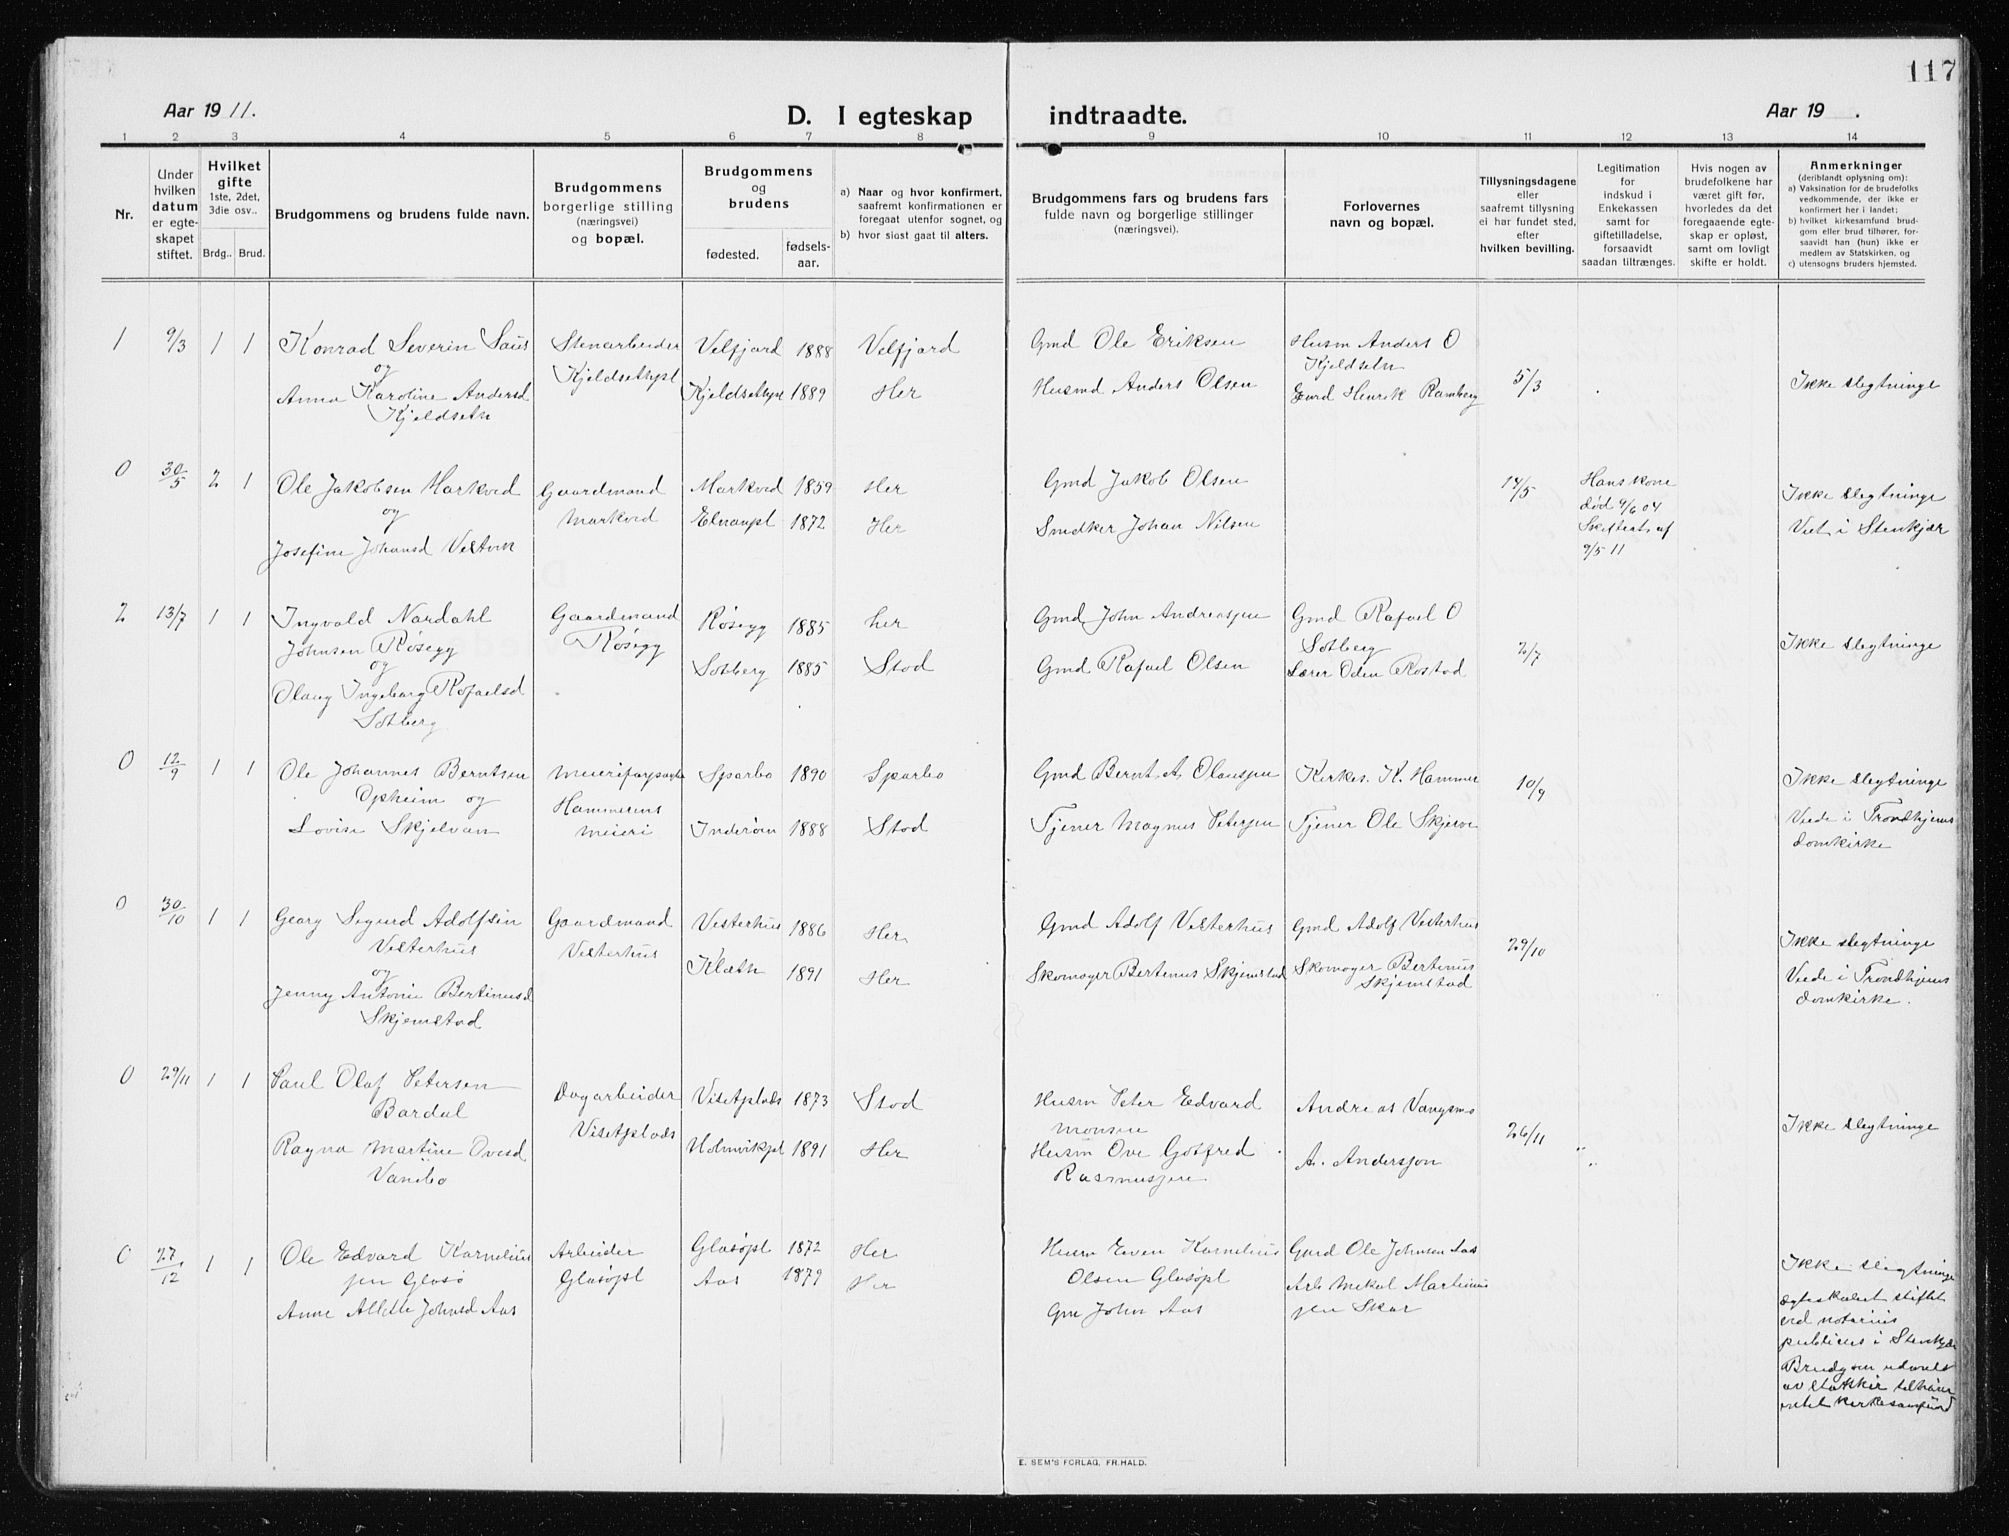 117
Aar 1911.
D. I egteskap indtraadte.
Aar 19 .
1 2 3 4 5 6 7 8 9 10 11 12 13 14
Nr.
Under
hvilken
datum
er egte-
skapet
stiftet.
Hvilket
gifte
1ste, 2det,
3die osv..
Brdg.. Brud.
Brudgommens og brudens fulde navn.
Brudgommens
borgerlige stilling
(næringsvei)
og bopæl.
Brudgommens
og
brudens
fødested.
fødsels-
aar.
a) Naar og hvor konfirmert,
saafremt konfirmationen er
foregaat utenfor sognet, og
b) hvor sidst gaat til alters.
Brudgommens fars og brudens fars
fulde navn og borgerlige stillinger
(næringsvei).
Forlovernes
navn og bopæl.
Tillysningsdagene
eller
saafremt tillysning
ei har fundet sted,
efter
hvilken bevilling.
Legitimation
for
indskud i
Enkekassen
samt for
giftetilladelse,
forsaavidt
saadan tiltrænges.
Hvis nogen av
brudefolkene har
været gift før,
hvorledes da det
foregaaende egte-
skap er opløst,
samt om lovligt
skifte er holdt.
Anmerkninger
(deriblandt oplysning om):
a) Vaksination for de brudefolks
vedkommende, der ikke er
konfirmert her i landet;
b) hvilket kirkesamfund brud-
gom eller brud tilhører, for-
saavidt han (hun) ikke er
medlem av Statskirken, og
c) utensogns bruders hjemsted.
1 9/3 1 1
Konrad Severin Saus
og
Anna Karoline Andersd
Kjeldseth
Stenarbeider
Kjeldsethpl
Velfjord 1888 Velfjord
Kjeldsethpl 1889 Her
Gmd Ole Eriksen
Husmd Anders Olsen
Husm Anders O
Kjeldseth
Henrik Ramberg
5/3
Ikke slegtninge
0 30/5 2 1
Ole Jakobsen Markved
og
Josefine Johansd Vestvik
Gaardmand
Markved
Markved 1859 Her
1872 Her
Gmd Jakob Olsen
Snedker Johan Nilsen
14/5
Hans kone
død 9/6 04
af
9/5 11
Ikke slegtninge
Viet i Stenkjær
2 13/7 1 1
Ingvald Nordahl
Johnsen Røsegg
og
Olaug Ingeborg Rafaelsd
Sotberg
Gaardmand
Røsegg
Røsegg 1885 her
Sotberg 1885 Stod
Gmd John Andreassen
Gmd Rafael Olsen
Gmd Rafael O
Sotberg
Lærer Oden Rostad
2/7
Ikke slegtninge
0 12/9 1 1
Ole Johannes Berntsen
Opheim og
Lovise Skjelvan
Hammerens
meieri
Sparbo 1890 Sparbo
Inderøen 1888 Stod
Gmd Bernt A. Olaussen
Tjener Magnus Petersen
Kirkes. K. Hammer
Tjener Ole Skjerve
10/9
Ikke slegtninge
Viede i Trondhjems
domkirke
0 30/10 1 1
Georg Sigurd Adolfsen
Vesterhus
og
Jenny Antonie Bertinusd
Skjemstad
Gaardmand
Vesterhus
Vesterhus 1886 Her
Klæth 1891 Her
Gmd Adolf Vesterhus
Skomager Bertinus Skjemstad
Gmd Adolf Vesterhus
Skomager Bertinus
Skjemstad
29/10
Ikke slegtninge
Viede i Trondhjems
domkirke.
0 29/11 1 1
Paul Olaf Petersen
Bardal
Ragna Martine Ovesd
Vanebo
Dagarbeider
Visetplads
Visetplads 1873 Stod
Holmvikpl 1891 Her
Husm Peter Edvard
Monsen
Husm Ove Gotfred
Rasmussen
Andreas Vangsmo
A. Anderssen
26/11
Ikke slegtninge
0 27/12 1 1
Ole Edvard Kornelius
sen Glasø
Anne Allette Johnsd Aas
Arbeider
Glasøpl
Glasøpl 1872 Her
Aas 1879 Her
Husm Even Kornelius
Olsen Glasøpl
Gm John Aas
Gmd Ole Johnsen Aas
Arb Mekal Martinus
sen Skar
Ikke slegtninge
Egteskabet stiftet
ved notarius
publicus i Stenkjær
Brudgom udmeldt
av statskir tilhører
intet kirkesamfund
E. SEM'S FORLAG, FR.HALD.